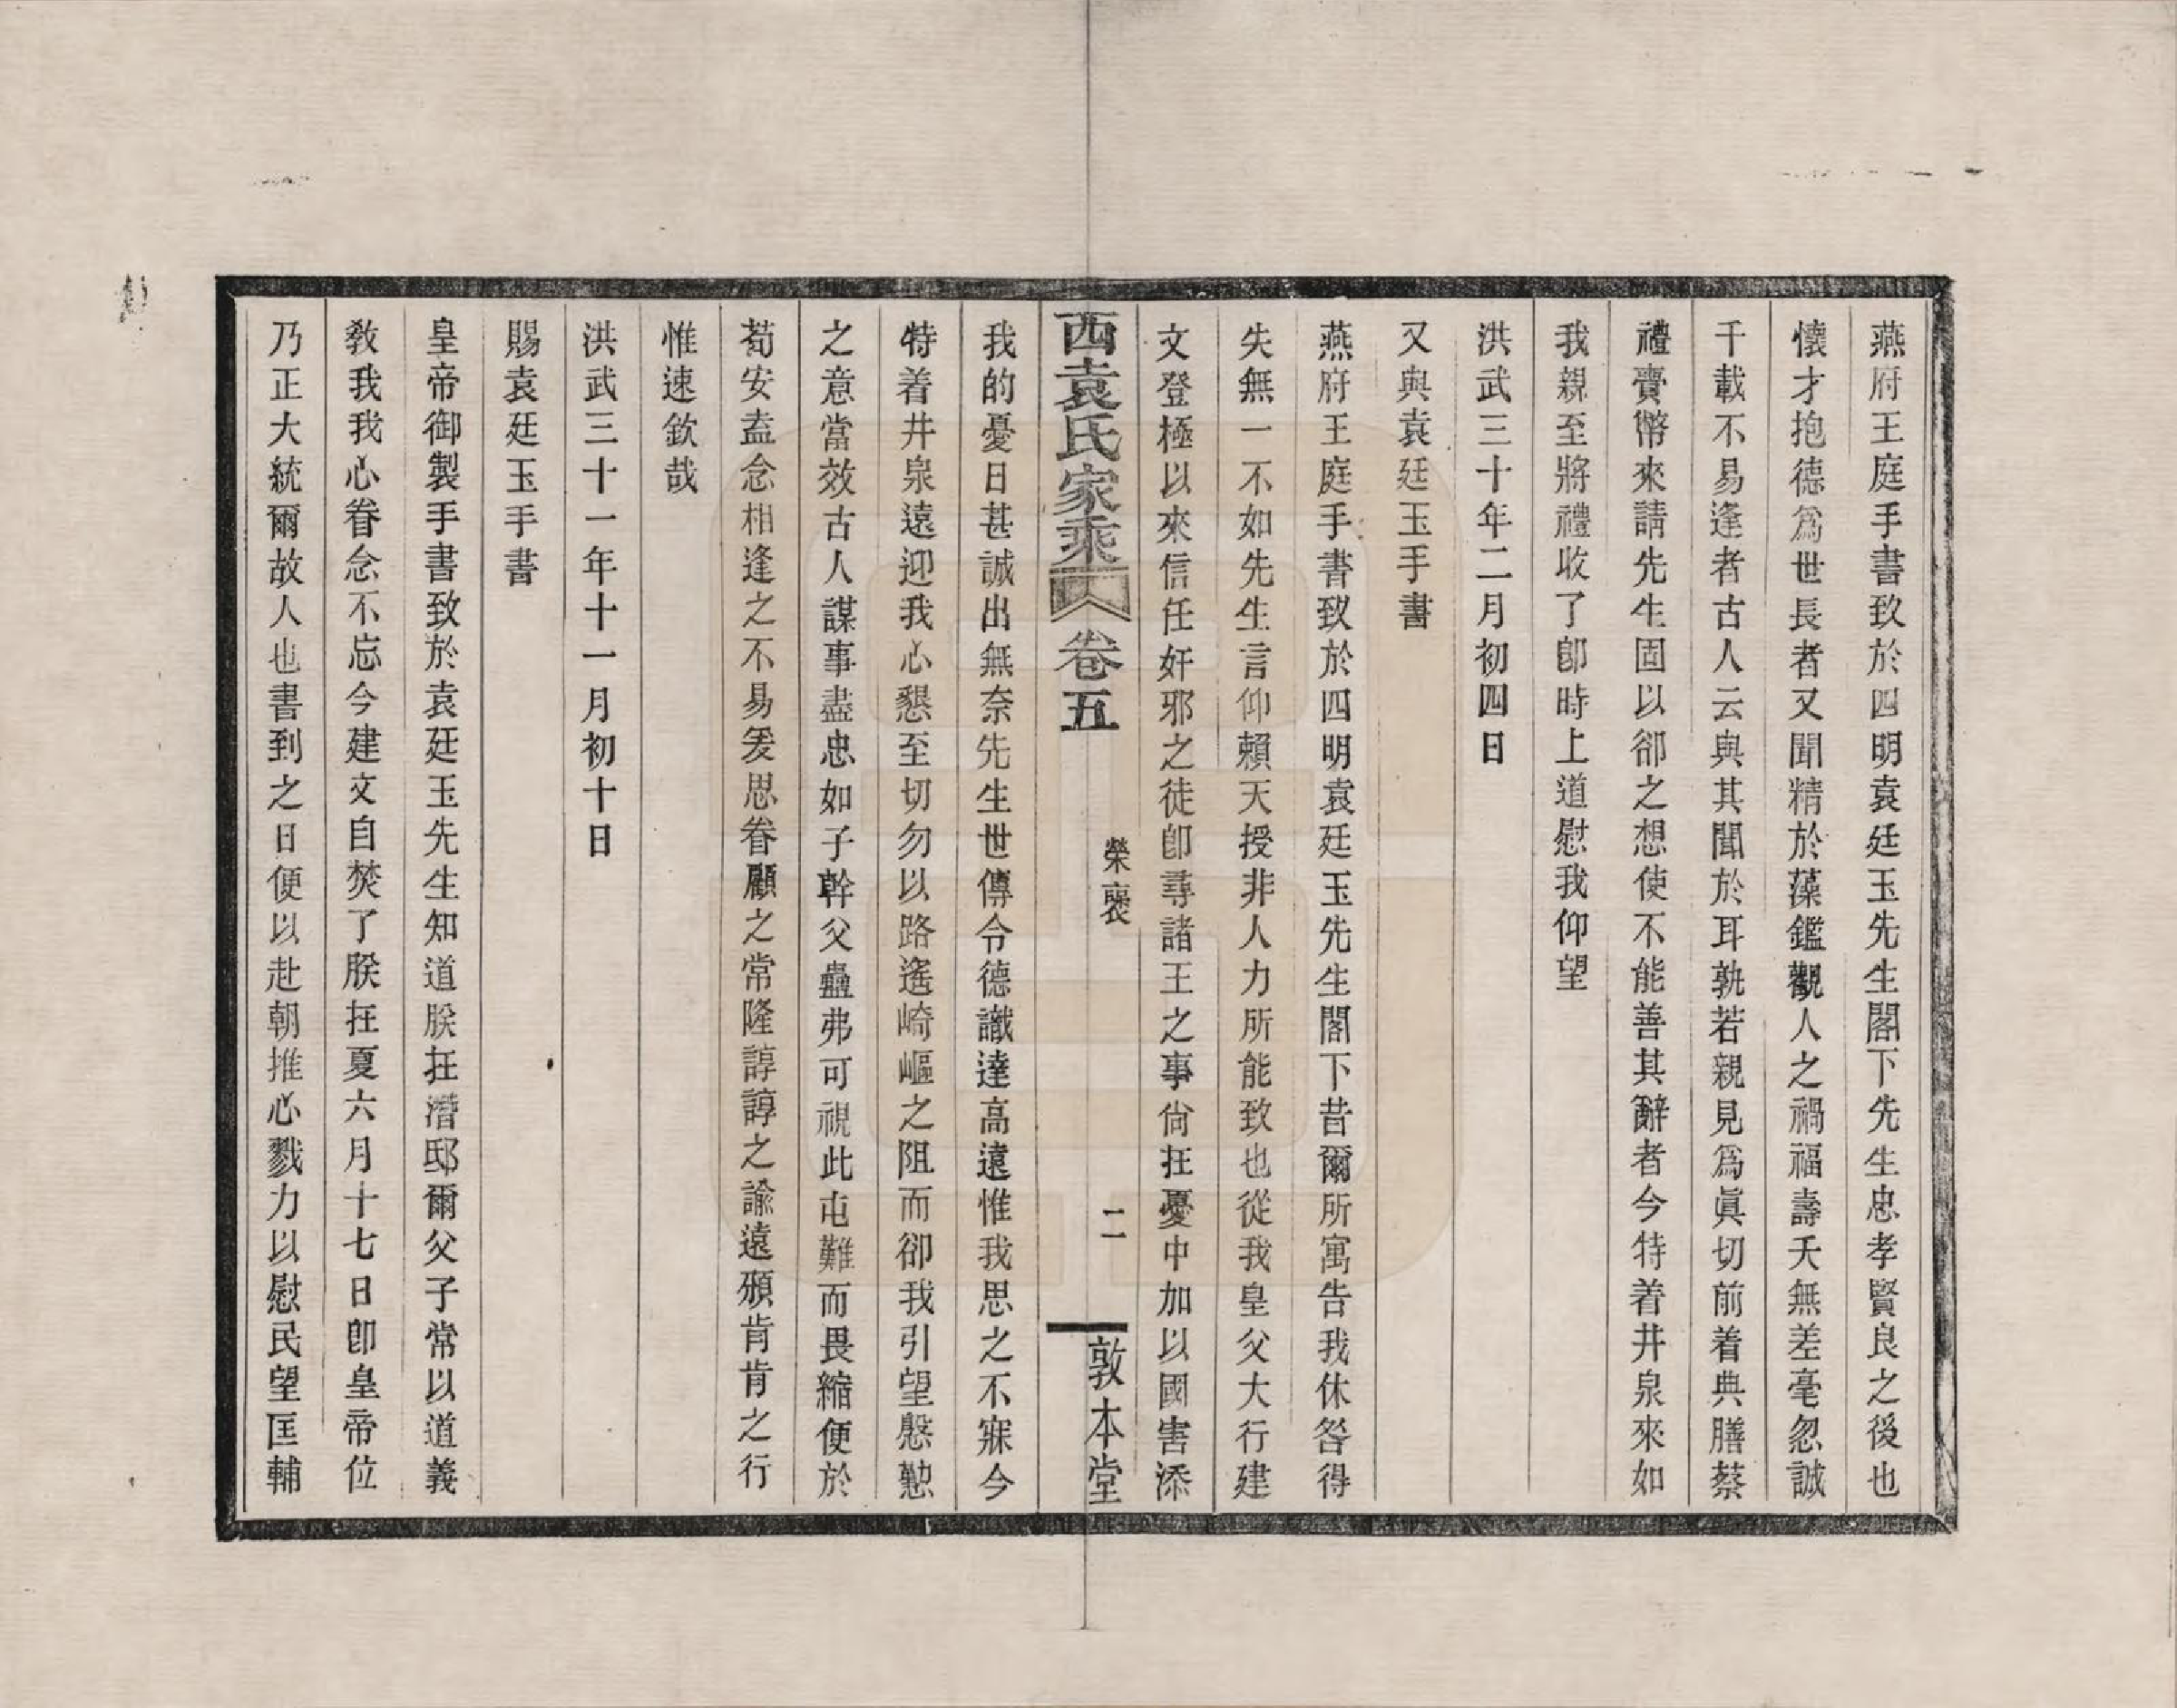 燕府王庭手書致於四明袁廷玉先生閣下先生忠孝賢良之後也
懷才抱德爲世長者又聞精於藻鑑觀人之禍福壽夭無差毫忽誠
千載不易逢者古人云與其聞於耳孰若親見爲眞切前着典膳蔡
禮賫幣來請先生固以郤之想使不能善其辭者今特着井泉來如
我親至將禮收了卽時上道慰我仰望
洪武三十年二月初四日
又與袁廷玉手書
燕府王庭手書致於四明袁廷玉先生閣下昔爾所寓告我休咎得
失無一不如先生言仰賴天授非人力所能致也從我皇父大行建
文登極以來信任奸邪之徒卽尋諸王之事尙在憂中加以國害添
西袁氏家乘 卷五 榮襃 二 敦本堂
我的憂日甚誠出無奈先生世傳令德識達高遠惟我思之不寐今
特着井泉遠迎我心懇至切勿以路遙崎嶇之阻而卻我引望慇懃
之意當效古人謀事盡忠如子幹父蠱弗可視此屯難而畏縮便於
荀安盍念相逢之不易爰思眷顧之常隆諄諄之諭遠頫肯肯之行
惟速欽哉
洪武三十一年十一月初十日
賜袁廷玉手書
皇帝御製手書致於袁廷玉先生知道朕在潛邸爾父子常以道義
敎我我心眷念不忘今建文自焚了朕在夏六月十七日卽皇帝位
乃正大統爾故人也書到之日便以赴朝推心戮力以慰民望匡輔